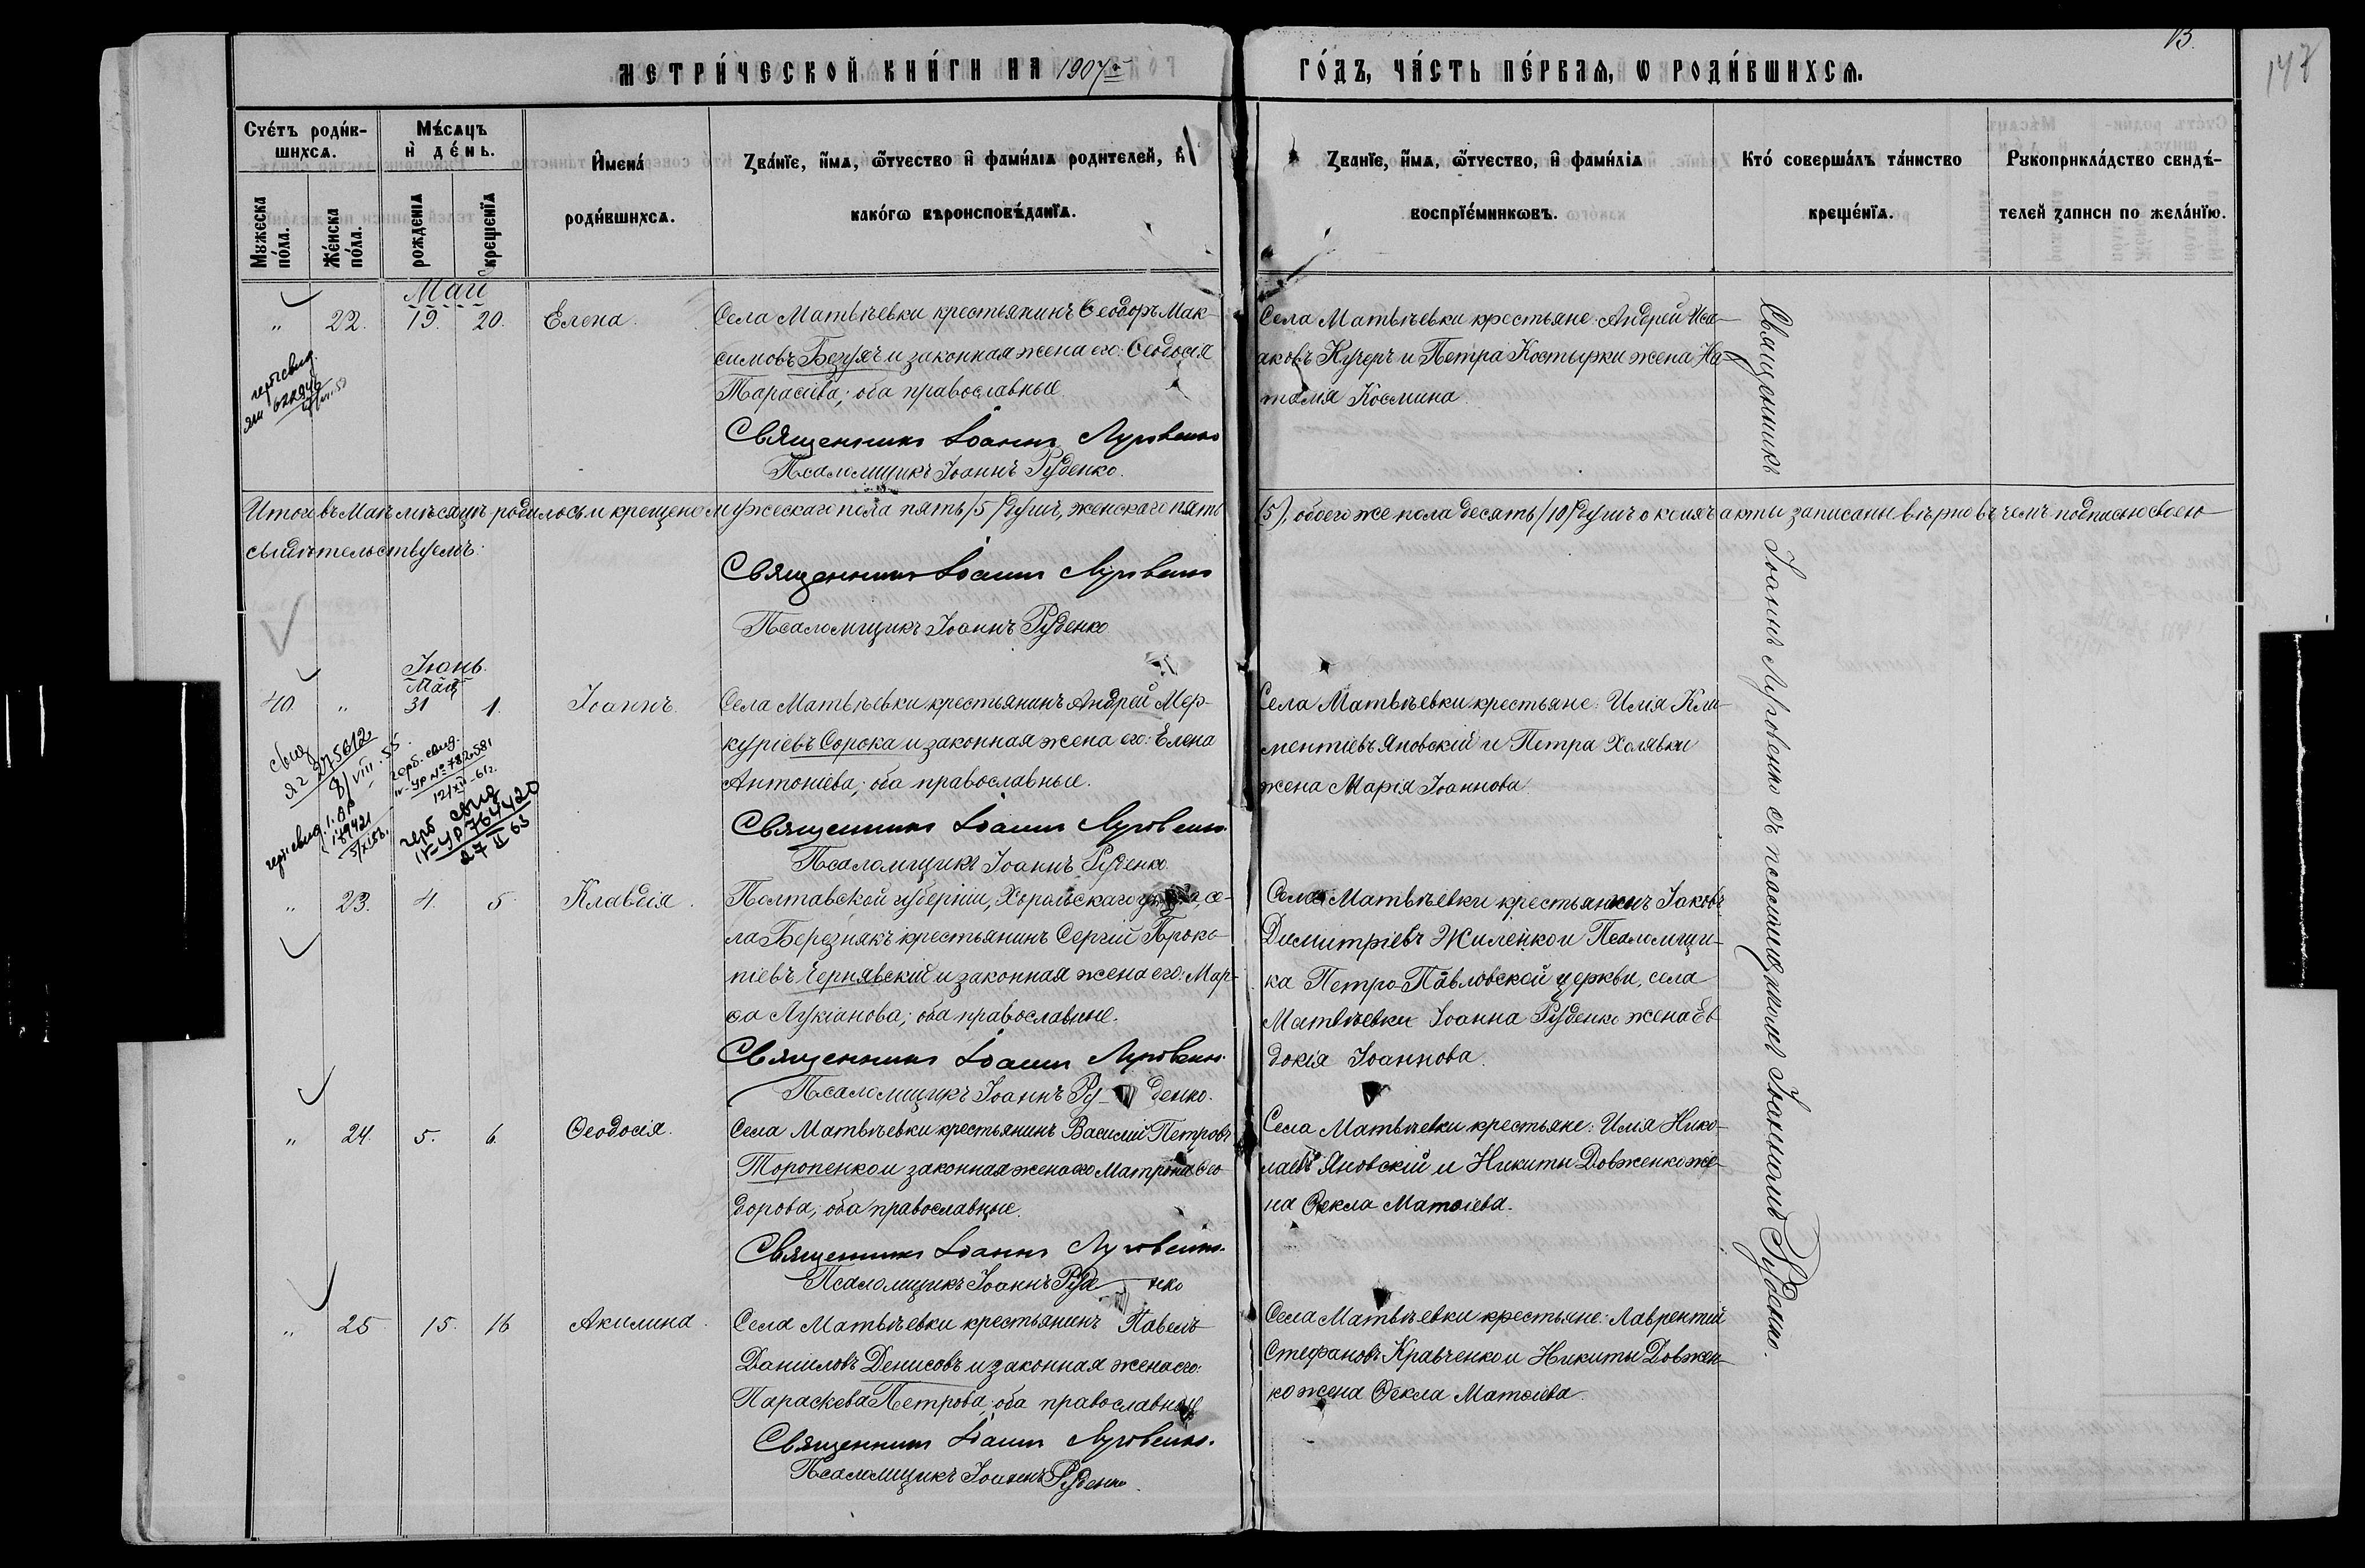 МЕТРИ́ЧЕСКОЙ КНИ́ГИ НА 1907й ГО́ДЪ, ЧА́СТЬ ПЕ́РВАЯ, Ѡ РОДИ́ВШИХСѦ.
13.
147
Сче́тъ роди́в-
шихсѧ.
Мꙋжеска по́ла.
Же́нска по́ла.
Мѣ́сѧцъ
и҆ де́нь.
рожденїѧ
крещенїѧ
И҆мена́
роди́вшихсѧ.
Зва́нїе, и҆́мѧ, ѻ҆́тчество и҆ фами́лїѧ родителей, и҆
како́гѡ вѣроисповѣ́данїѧ.
Зва́нїе, и҆́мѧ, ѻ҆́тчество, и҆ фами́лїѧ
воспрїе́мникѡвъ.
Кто́ соверша́лъ та́инство
креще́нїѧ.
Рꙋкоприкла́дство свидѣ́-
телей записи по жела́нїю.
Май
" 22. 19. 20. Елена.
Села Матвѣевки крестьянинъ Ѳеодоръ Мак-
симовъ Безуяъ и законная жена его: Ѳеодосія
Тарасіева; оба православные.
Священникъ Іоаннъ Луговенко
Псаломщикъ Іоаннъ Руденко.
Села Матвѣевки крестьяне: Андрей Иса-
аковъ Кучеръ и Петра Костырки жена На-
талія Космина.
Итого въ Маѣ мѣсяцѣ родилось и крещено мужескаго пола пять /5/ душъ, женскаго пять /5/, обоего же пола десять /10/ душъ о коихъ акты записаны вѣрно въ чемъ подписью своею
свидѣтельствуемъ:
Священникъ Іоаннъ Луговенко
Псаломщикъ Іоаннъ Руденко
Іюнь.
Май
40. " 31 1. Іоаннъ.
Села Матвѣевки крестьянинъ Андрей Мер-
куріевъ Сорока и законная жена его: Елена
Антоніева; оба православные.
Священникъ Іоаннъ Луговенко.
Псаломщикъ Іоаннъ Руденко.
Села Матвѣевки крестьяне: Илія Кли-
ментіевъ Яновскій и Петра Холявки
жена Марія Іоаннова.
275612
8/VIII.55.
герб. свид.
IV-УР № 782058,
12/XI-61г.
189421
герб свид
IV-УР 764420
27 II 63
" 23. 4. 5. Клавдія.
Полтавской губерніи, Хорольскаго се-
ла Березнякъ крестьянинъ Сергій Проко-
піевъ Чернявскій и законная жена его: Мар-
ѳа Лукіанова; оба православные.
Священникъ Іоаннъ Луговенко.
Псаломщикъ Іоаннъ Руденко.
Села Матвѣевки крестьянинъ Іаковъ
Димитріевъ Жиленко и Псаломщи-
ка Петро-Павловской церкви, села
Матвѣевки Іоанна Руденко жена Ев-
докія Іоаннова.
" 24. 5. 6. Ѳеодосія.
Села Матвѣевки крестьянинъ Василій Петровъ
Торопенко и законная жена его Матрона Ѳео-
дорова; оба православные.
Священникъ Іоаннъ Луговенко.
Псаломщикъ Іоаннъ Руденко
Села Матвѣевки крестьяне: Илія Нико-
лаевъ Яновскій и Никиты Довженко же-
на Ѳекла Матѳіева.
" 25. 15. 16 Акилина.
Села Матвѣевки крестьянинъ Павелъ
Даніиловъ Денисовъ и законная жена его:
Параскева Петрова; оба православные
Священникъ Іоаннъ Луговенко.
Псаломщикъ Іоаннъ Руденко.
Села Матвѣевки крестьяне: Лаврентій
Стефановъ Кравченко и Никиты Довжен-
ко жена Ѳекла Матѳіева.
Священникъ Іоаннъ Луговенко съ псаломщикомъ Іоанномъ Руденко.